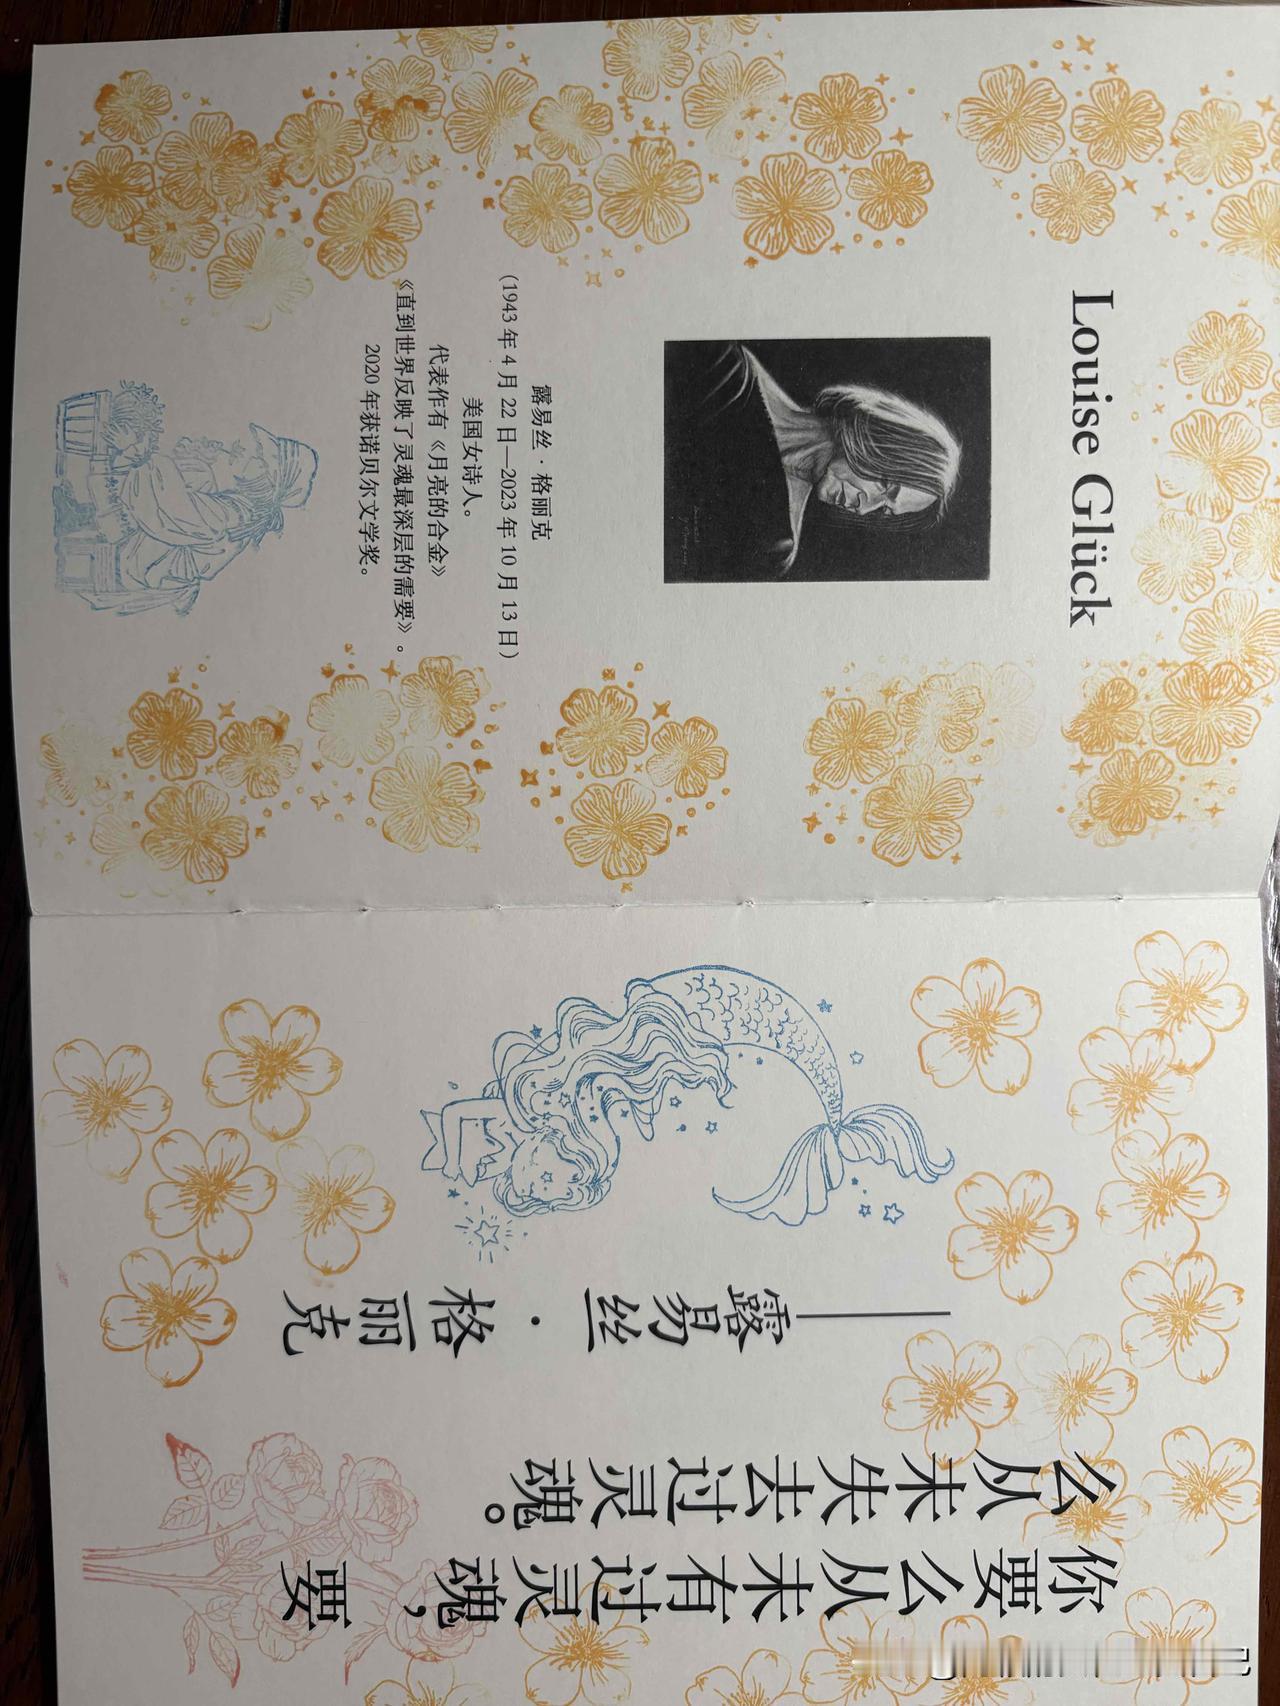 Louise Glück
露易丝·格丽克
(1943 年 4 月 22 日—2023 年 10 月 13 日)
美国女诗人。
代表作有《月亮的合金》
《直到世界反映了灵魂最深层的需要》。
2020 年获诺贝尔文学奖。
你要么从未有过灵魂,要
么从未失去过灵魂。
——露易丝·格丽克